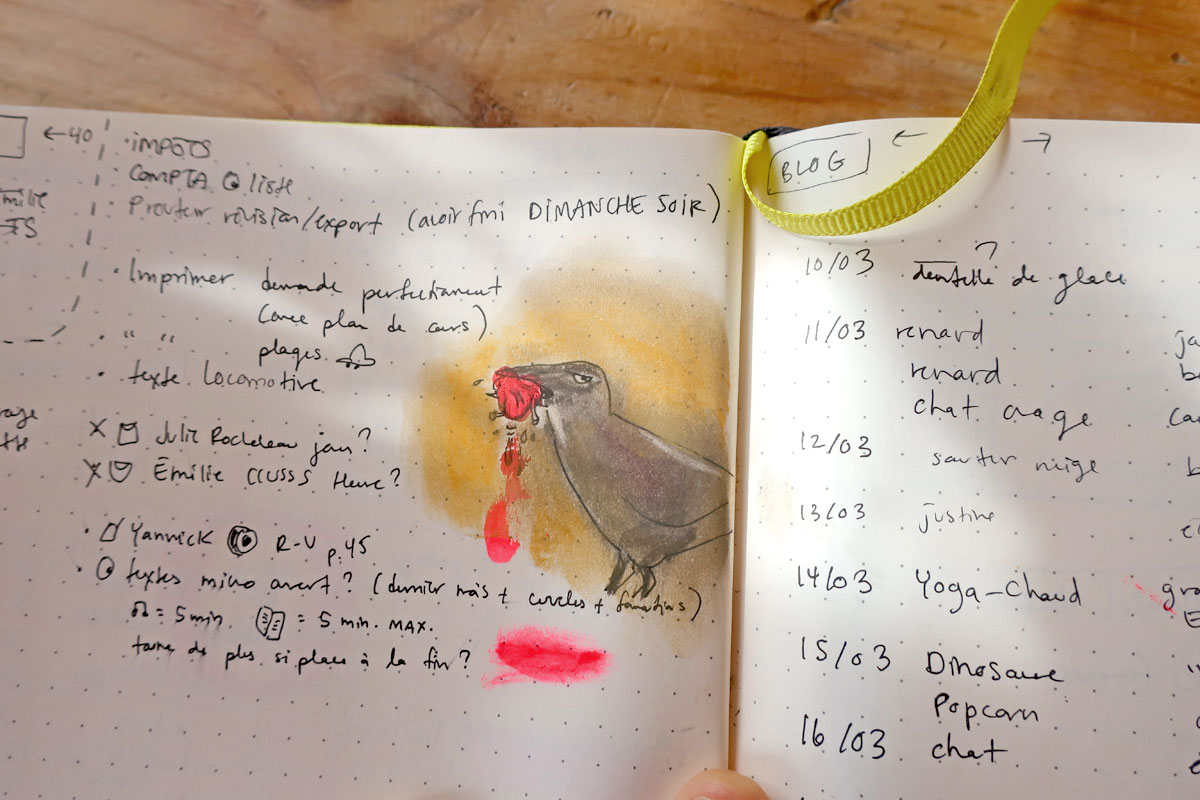 ←40
· IMPÔTS
· COMPTA liste
· révision/export (avoir fini DIMANCHE SOIR)
· Imprimer demande perfectionnement
(avec plan de cours)
· " "
plages
· texte Locomotive
X Julie jan?
X Émilie Heure?
· Yannick R-V p.45
· textes micro avert? (dernier mois + cercles + )
= 5 min. = 5 min. MAX.
de plus si place à la fin?
BLOG ← →
?
10/03 dentelle de glace
11/03 renard
renard
chat
12/03 sauter neige
13/03 justine
14/03 Yoga-Chaud
15/03 Dinosaure
Popcorn
16/03 chat